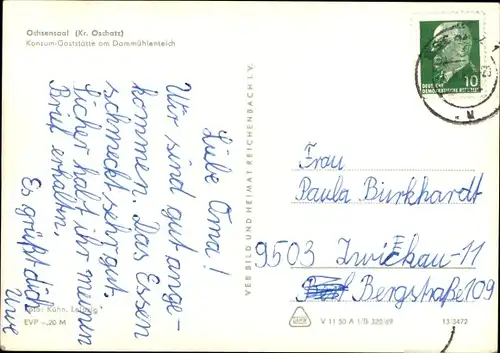 Ochsensaal (Kr. Oschatz)
Konsum-Gaststätte am Dammühlenteich
Liebe Oma!
Wir sind gut ange-
kommen. Das Essen
schmeckt sehr gut.
Sicher habt ihr meinen
Brief erhalten.
Es grüßt dich
Uwe
Foto: Kühn, Leipzig
EVP -,20 M
VEB BILD UND HEIMAT REICHENBACH I. V.
10
DEUTSCHE
DEMOKRATISCHE REPUBLIK
Frau
Paula Burkhardt
9503 Zwickau-11
Bergstraße 109
V 11 50 A 1/B 320/69
13/3472